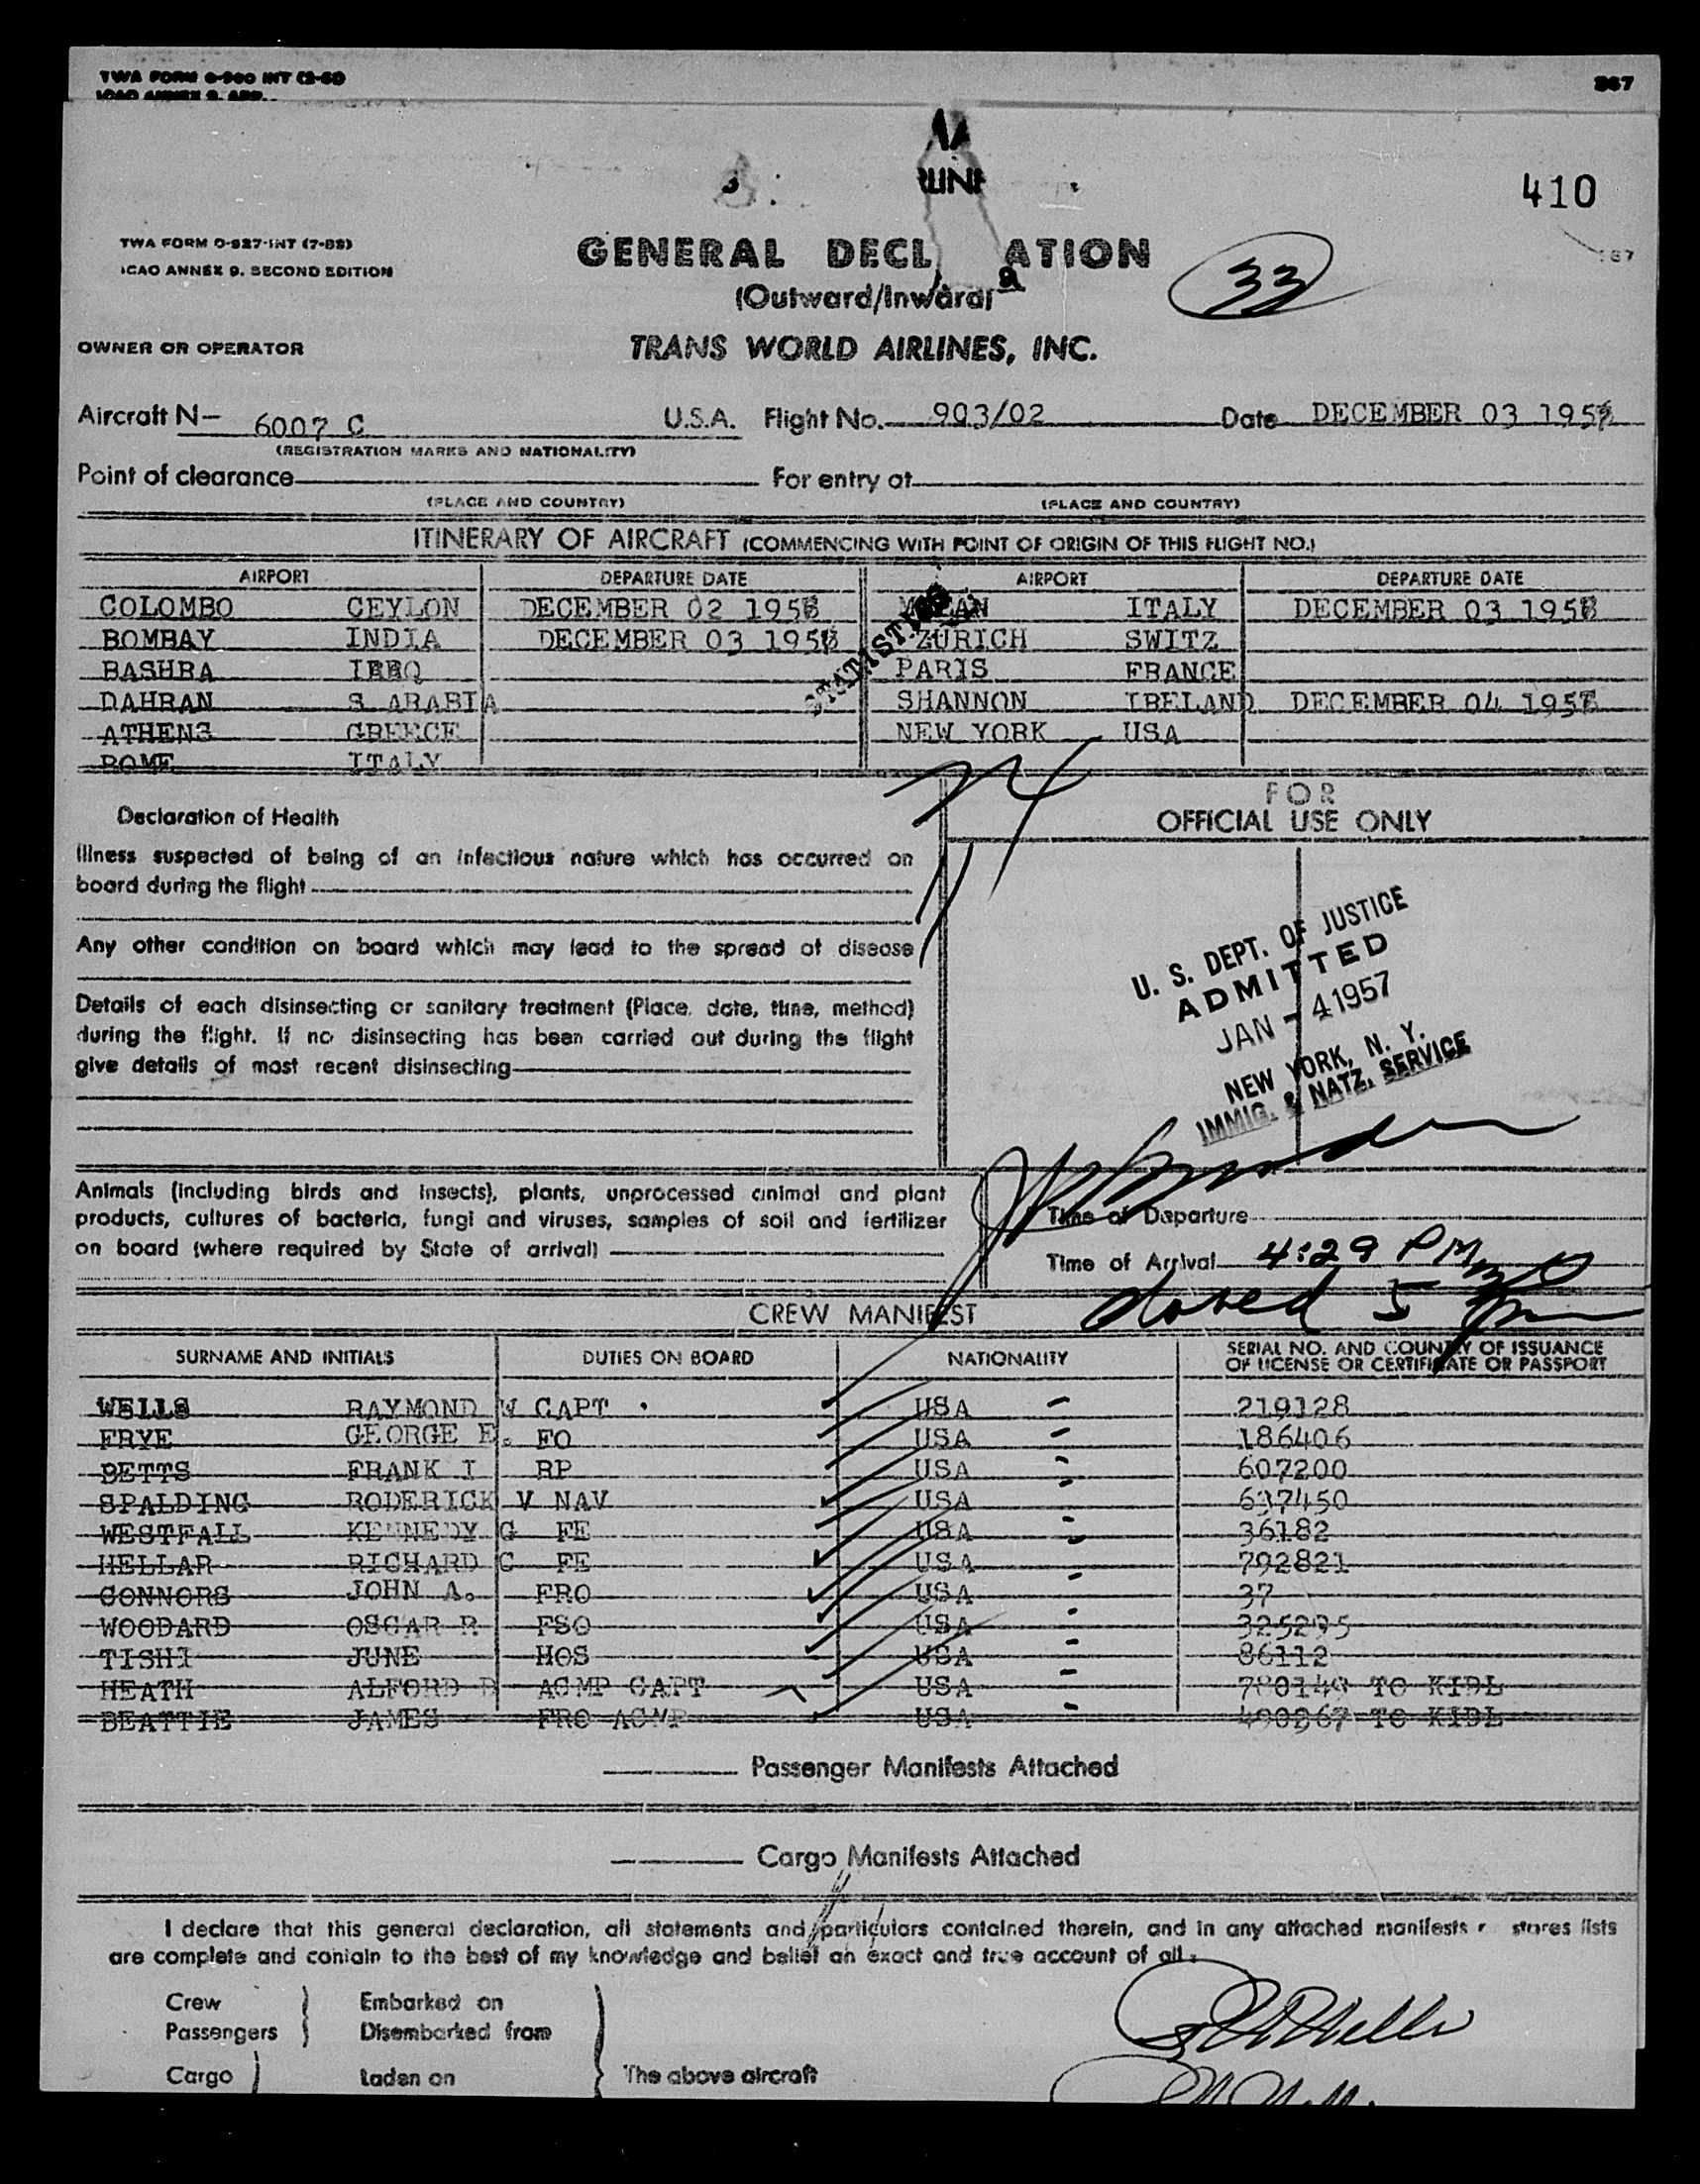 TWA FORM O-900 INT (2-61)
367
410
TWA FORM O-927-INT (7-55)
ICAO ANNEX 9, SECOND EDITION
GENERAL DECL ATION
33
(Outward/Inward)
OWNER OR OPERATOR
TRANS WORLD AIRLINES, INC.
Aircraft N- 6007 C U.S.A. Flight No. 903/02 Date DECEMBER 03 195
(REGISTRATION MARKS AND NATIONALITY)
Point of clearance For entry at
(PLACE AND COUNTRY) (PLACE AND COUNTRY)
ITINERARY OF AIRCRAFT (COMMENCING WITH POINT OF ORIGIN OF THIS FLIGHT NO.)
AIRPORT DEPARTURE DATE AIRPORT DEPARTURE DATE
COLOMBO CEYLON DECEMBER 02 195 ITALY DECEMBER 03 195
BOMBAY INDIA DECEMBER 03 195 ZURICH SWITZ
BASHRA PARIS FRANCE
DAHRAN S ARABIA SHANNON IRELAND DECEMBER 04 195
ATHENS GREECE NEW YORK USA
ROME ITALY
FOR
Declaration of Health OFFICIAL USE ONLY
Illness suspected of being of an infectious nature which has occurred on
board during the flight
Any other condition on board which may lead to the spread of disease
Details of each disinsecting or sanitary treatment (Place, date, time, method)
during the flight. If no disinsecting has been carried out during the flight
give details of most recent disinsecting
U. S. DEPT. OF JUSTICE
ADMITTED
JAN - 4 1957
NEW YORK, N. Y.
IMMIG. & NATZ. SERVICE
Animals (including birds and insects), plants, unprocessed animal and plant
products, cultures of bacteria, fungi and viruses, samples of soil and fertilizer
on board (where required by State of arrival)
Time of Departure
Time of Arrival 4:29 PM
closed 5
CREW MANIFEST
SURNAME AND INITIALS DUTIES ON BOARD NATIONALITY SERIAL NO. AND COUNTRY OF ISSUANCE
OF LICENSE OR CERTIFICATE OR PASSPORT
WELLS RAYMOND W CAPT USA 219128
FRYE GEORGE E. FO USA 186406
BETTS FRANK I RP USA 607200
SPALDING RODERICK V NAV USA 637450
WESTFALL KENNEDY G FE USA 36182
HELLAR RICHARD C FE USA 792821
CONNORS JOHN A. FRO USA 37
WOODARD OSCAR R FSO USA 325295
TISHI JUNE HOS USA 86112
HEATH ALFORD ACMP CAPT USA 780149 TO KIDL
BEATTIE JAMES FRO ACMP USA 490267 TO KIDL
Passenger Manifests Attached
Cargo Manifests Attached
I declare that this general declaration, all statements and particulars contained therein, and in any attached manifests stores lists
are complete and contain to the best of my knowledge and belief an exact and true account of all:
Crew Embarked on
Passengers Disembarked from
Cargo Laden on The above aircraft